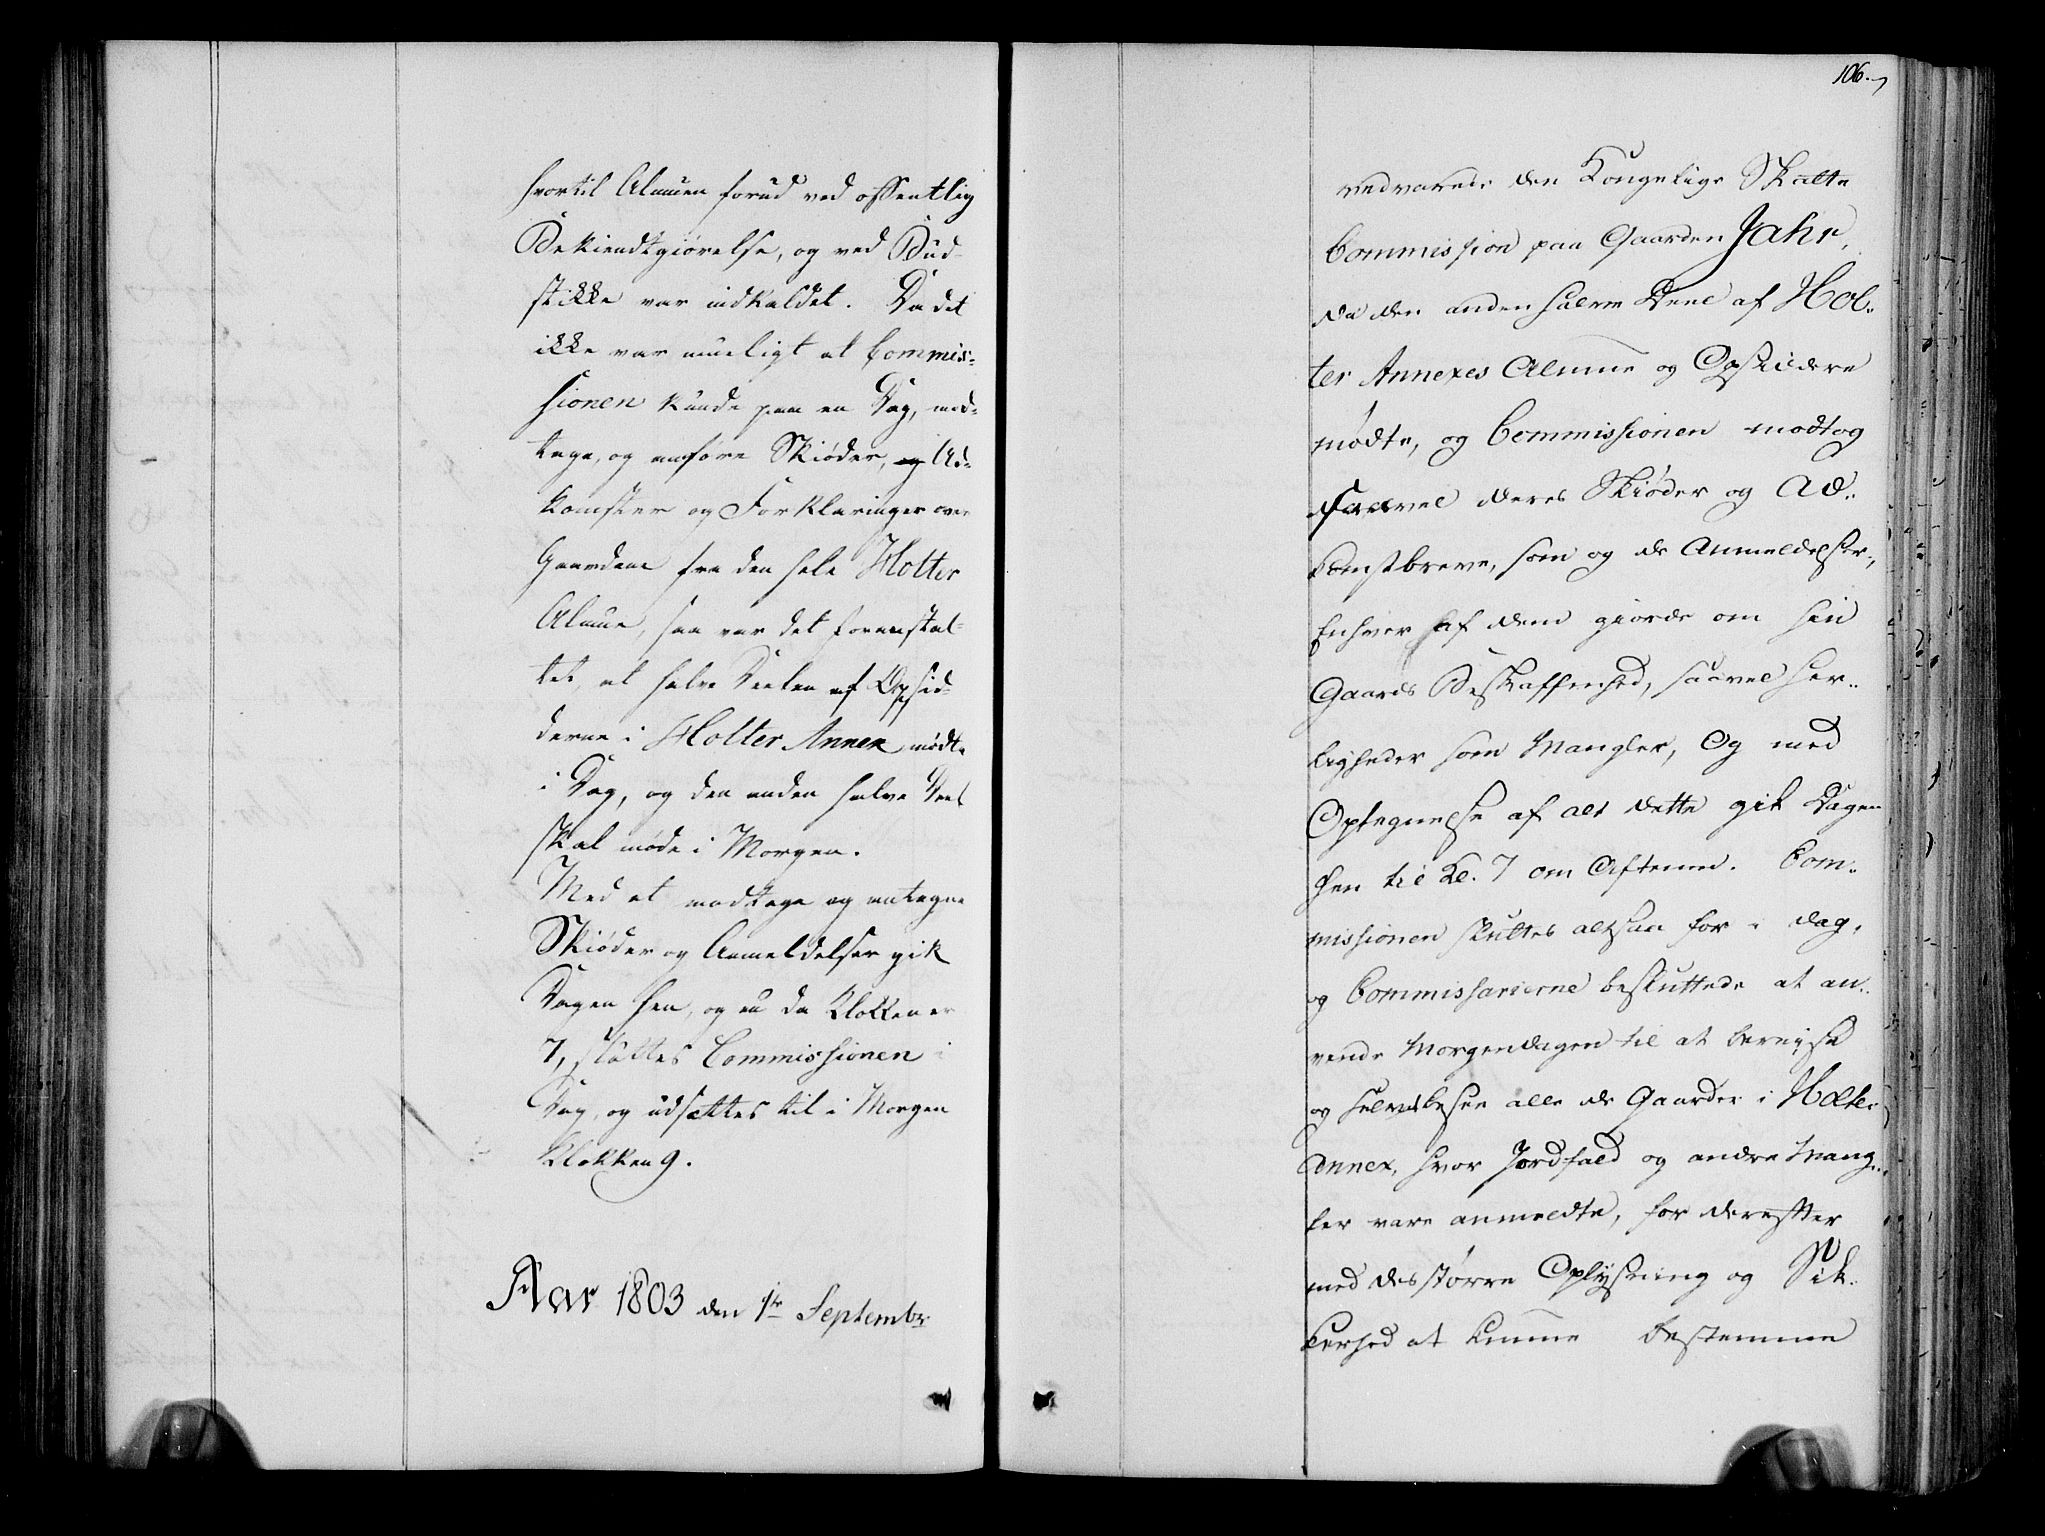 hvortil Almuen forud ved offentlig
Bekiendtgiørelse, og ved Bud-
stikke var indkaldet. Da det
ikke var mueligt at Commis-
sionen kunde paa en Dag, mod-
tage, og anføre Skiøder, og Ad-
komster og Forklaringer over
Gaardene fra den hele Holter
Almue, saa var det foranstal-
tet, at halve Deelen af Opsid-
derne i Holter Annex mødte
i Dag, og den anden halve Deel
skal møde i Morgen.
Med at modtage og antegne
Skiøder og Anmeldelser gik
Dagen hen, og nu da Klokken er
7, sluttes Commissionen i
Dag, og udsættes til i Morgen
Klokken 9.
Aar 1803 den 1te Septembr
106.
vedvarede den Kongelige Skatte
Commission paa Gaarden Jahr,
da den anden halve Deel af Hol-
ter Annexes Almue og Opsiddere
mødte, og Commissionen modtog
saavel deres Skiøder og Ad-
komstbreve, som og de Anmeldelser,
Enhver af dem giorde om sin
Gaards Beskaffenhed, saavel Her-
ligheder som Mangler, Og med
Optegnelse af alt dette gik Dagen
hen til Kl. 7 om Aftenen. Com-
missionen sluttes altsaa for i dag,
og Commissarierne besluttede at an-
vende Morgendagen til at bereyse
og selv besee alle de Gaarde i Holter
Annex, hvor Jordfald og andre Mang-
ler vare anmeldte, for derefter
med des større Oplysning og Sik-
kerhed at kunne bestemme